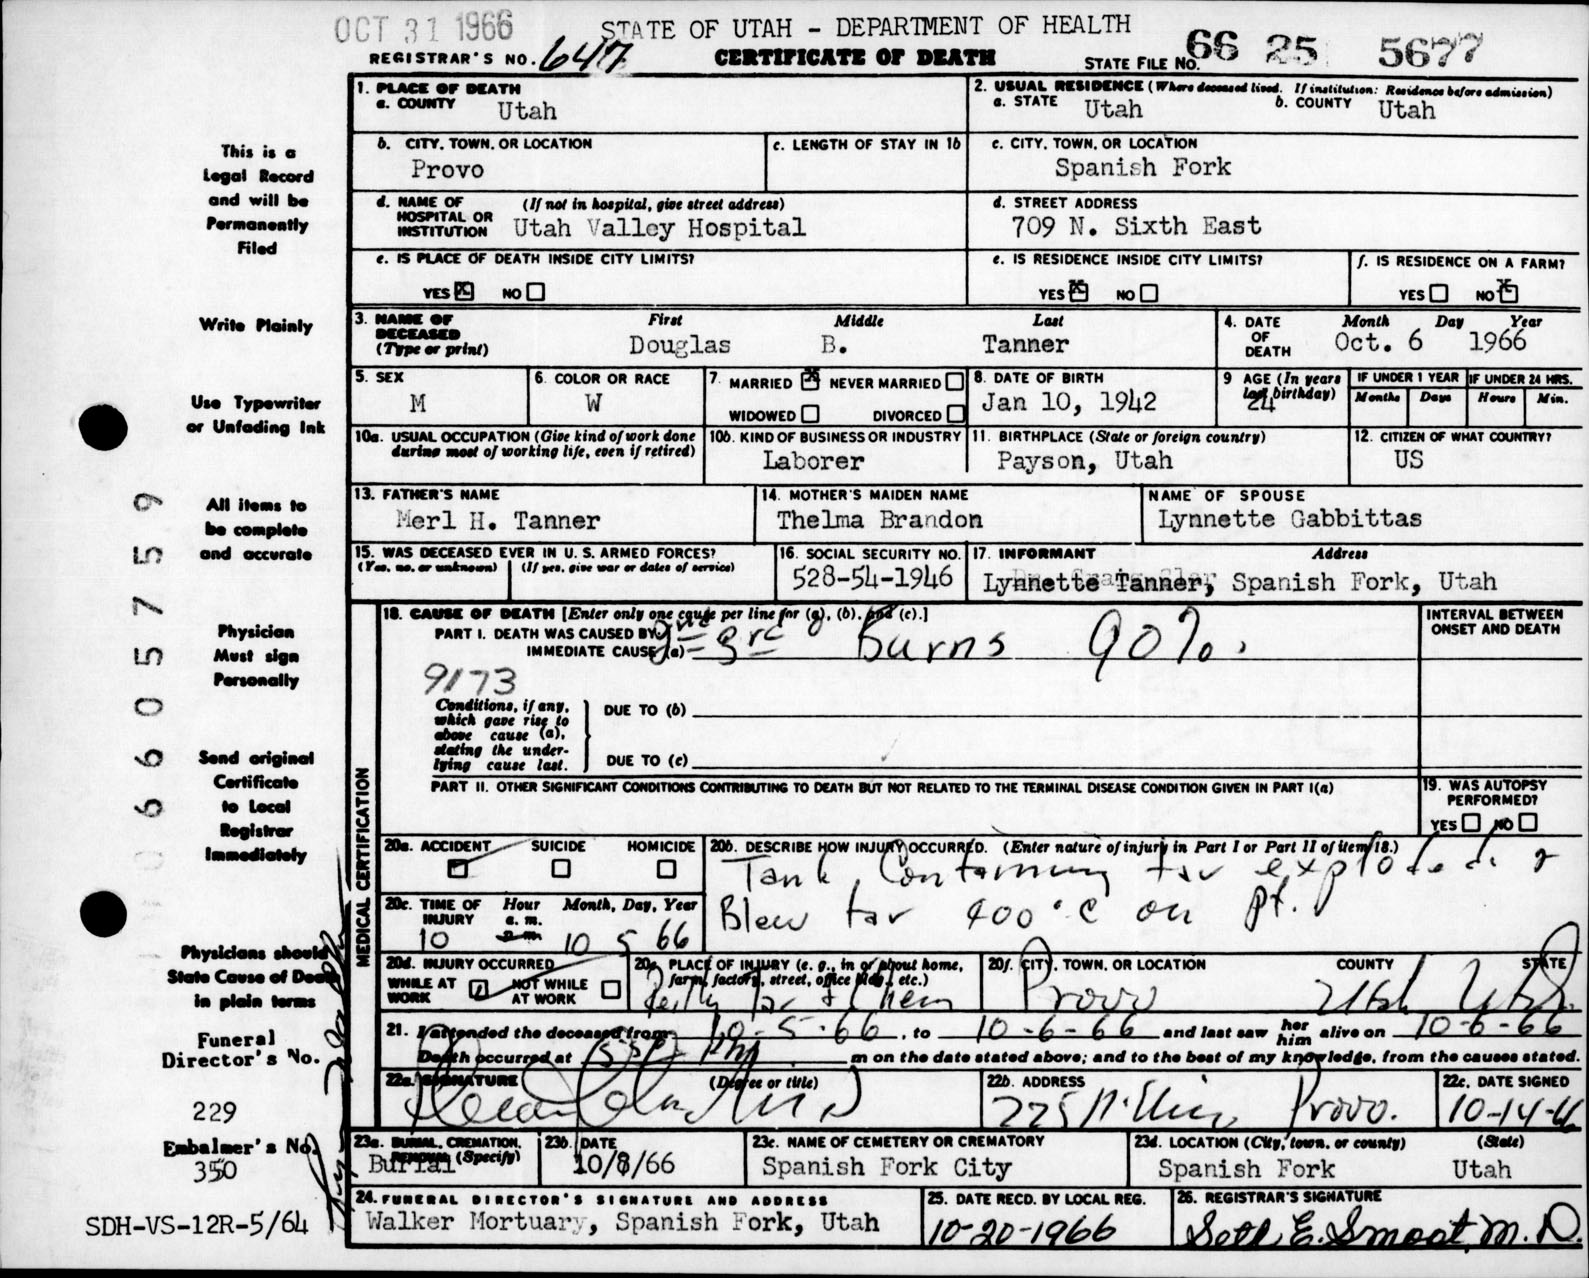 OCT 31 1966
STATE OF UTAH - DEPARTMENT OF HEALTH
REGISTRAR'S NO. 647
CERTIFICATE OF DEATH
STATE FILE NO. 66 25 5677
This is a
Legal Record
and will be
Permanently
Filed
Write Plainly
Use Typewriter
or Unfading Ink
All items to
be complete
and accurate
Physician
Must sign
Personally
Send original
Certificate
to Local
Registrar
Immediately
Physicians should
State Cause of Death
in plain terms
Funeral
Director's No.
229
Embalmer's No.
350
SDH-VS-12R-5/64
066057559
1. PLACE OF DEATH
a. COUNTY Utah
2. USUAL RESIDENCE (Where deceased lived. If institution: Residence before admission)
a. STATE Utah b. COUNTY Utah
b. CITY, TOWN, OR LOCATION
Provo
c. LENGTH OF STAY IN 1b
c. CITY, TOWN, OR LOCATION
Spanish Fork
d. NAME OF (If not in hospital, give street address)
HOSPITAL OR
INSTITUTION Utah Valley Hospital
d. STREET ADDRESS
709 N. Sixth East
e. IS PLACE OF DEATH INSIDE CITY LIMITS?
YES X NO
e. IS RESIDENCE INSIDE CITY LIMITS?
YES X NO
f. IS RESIDENCE ON A FARM?
YES NO X
3. NAME OF
DECEASED
(Type or print)
First Middle Last
Douglas B. Tanner
4. DATE
OF
DEATH
Month Day Year
Oct. 6 1966
5. SEX
M
6. COLOR OR RACE
W
7. MARRIED X NEVER MARRIED
WIDOWED DIVORCED
8. DATE OF BIRTH
Jan 10, 1942
9 AGE (In years
last birthday)
24
IF UNDER 1 YEAR
Months Days
IF UNDER 24 HRS.
Hours Min.
10a. USUAL OCCUPATION (Give kind of work done
during most of working life, even if retired)
10b. KIND OF BUSINESS OR INDUSTRY
Laborer
11. BIRTHPLACE (State or foreign country)
Payson, Utah
12. CITIZEN OF WHAT COUNTRY?
US
13. FATHER'S NAME
Merl H. Tanner
14. MOTHER'S MAIDEN NAME
Thelma Brandon
NAME OF SPOUSE
Lynnette Gabbittas
15. WAS DECEASED EVER IN U. S. ARMED FORCES?
(Yes, no, or unknown) (If yes, give war or dates of service)
16. SOCIAL SECURITY NO.
528-54-1946
17. INFORMANT Address
Lynnette Tanner, Spanish Fork, Utah
MEDICAL CERTIFICATION
18. CAUSE OF DEATH [Enter only one cause per line for (a), (b), and (c).]
PART I. DEATH WAS CAUSED BY:
IMMEDIATE CAUSE (a) 3rd Burns 90%.
INTERVAL BETWEEN
ONSET AND DEATH
9173
Conditions, if any,
which gave rise to
above cause (a),
stating the under-
lying cause last.
DUE TO (b)
DUE TO (c)
PART II. OTHER SIGNIFICANT CONDITIONS CONTRIBUTING TO DEATH BUT NOT RELATED TO THE TERMINAL DISEASE CONDITION GIVEN IN PART I(a)
19. WAS AUTOPSY
PERFORMED?
YES NO
20a. ACCIDENT SUICIDE HOMICIDE
20b. DESCRIBE HOW INJURY OCCURRED. (Enter nature of injury in Part I or Part II of item 18.)
Tank Containing tar exploded &
Blew tar 400°C on Pt.
20c. TIME OF Hour Month, Day, Year
INJURY a. m.
p. m.
10 10 5 66
20d. INJURY OCCURRED
WHILE AT WORK NOT WHILE AT WORK
20e. PLACE OF INJURY (e. g., in or about home,
farm, factory, street, office bldg., etc.)
Reilly Tar & Chem
20f. CITY, TOWN, OR LOCATION COUNTY STATE
Provo Utah Utah
21. I attended the deceased from 10-5-66, to 10-6-66 and last saw her him alive on 10-6-66
Death occurred at m on the date stated above; and to the best of my knowledge, from the causes stated.
22a. SIGNATURE (Degree or title)
22b. ADDRESS
Provo.
22c. DATE SIGNED
10-14-66
23a. BURIAL, CREMATION,
REMOVAL (Specify)
Burial
23b. DATE
10/8/66
23c. NAME OF CEMETERY OR CREMATORY
Spanish Fork City
23d. LOCATION (City, town, or county) (State)
Spanish Fork Utah
24. FUNERAL DIRECTOR'S SIGNATURE AND ADDRESS
Walker Mortuary, Spanish Fork, Utah
25. DATE RECD. BY LOCAL REG.
10-20-1966
26. REGISTRAR'S SIGNATURE
Seth E. Smoot, M. D.